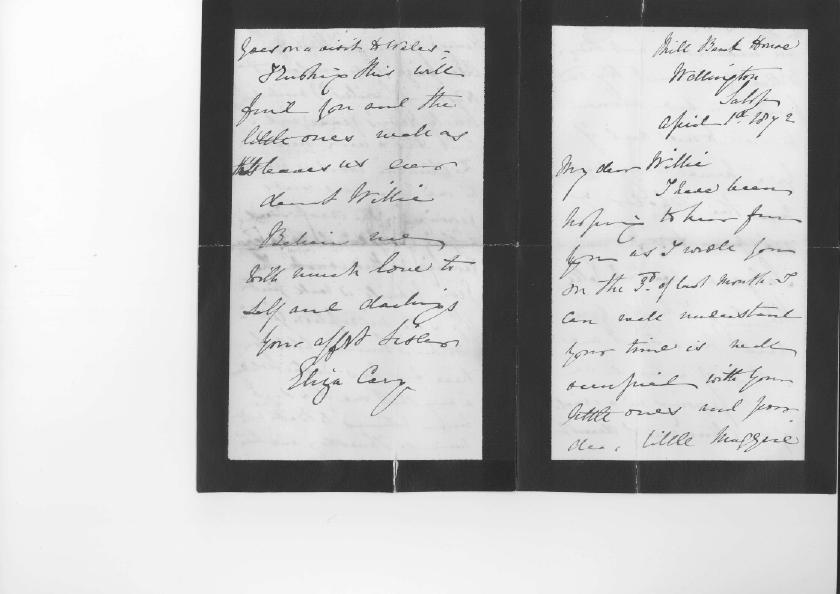 Mill Bank House
Wellington
Salop
April 1st 1872
My dear Willie
I have been
hoping to hear from
you as I wrote you
on the 3d. of last month. I
can well understand
your time is well
occupied with your
little ones and poor
dear little Maggie
goes on a visit to Wales -
Trusting this will
find you and the
little ones well as
leaves us ever
dearest Willie
Believe me
With much love to
self and darlings
Your affct Sister
Eliza Cary